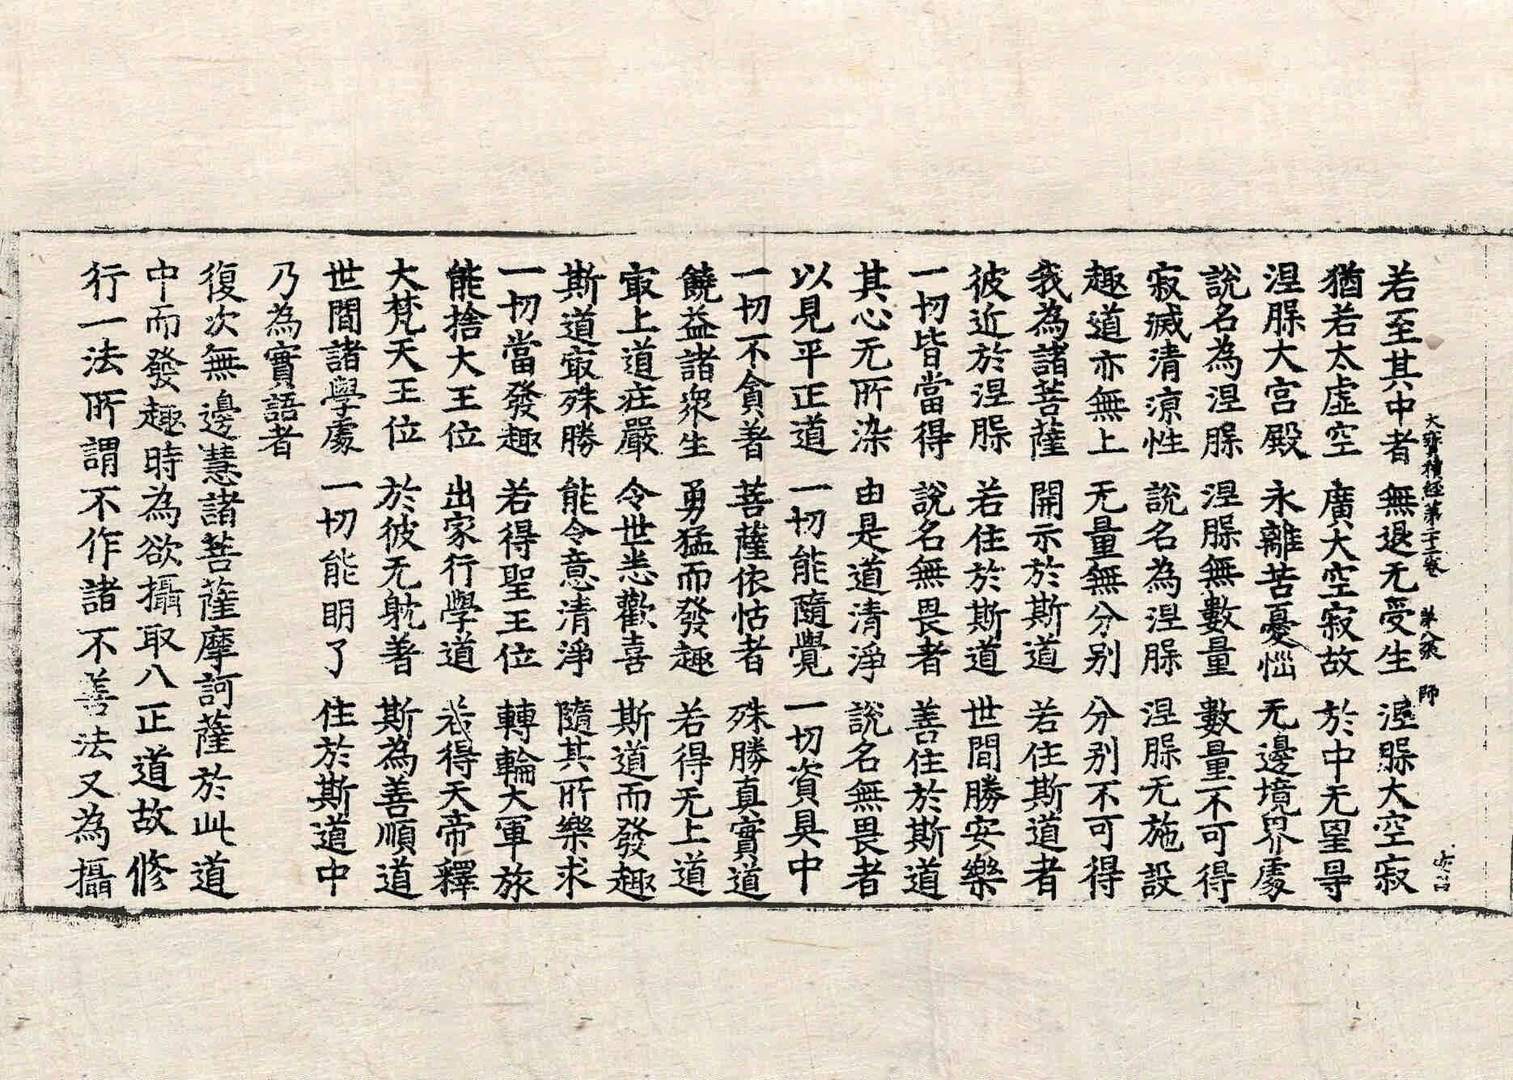 大寶積經第二十三卷　第八張　師
若至其中者　無退无受生　涅槃大空寂
猶若太虛空　廣大空寂故　於中无罣㝵
涅槃大宫殿　永離苦憂惱　无邊境界處
說名為涅槃　涅槃無數量　數量不可得
寂滅清涼性　說名為涅槃　涅槃无施設
趣道亦無上　无量無分别　分别不可得
我為諸菩薩　開示於斯道　若住斯道者
彼近於涅槃　若住於斯道　世間勝安樂
一切皆當得　說名無畏者　善住於斯道
其心无所染　由是道清淨　說名無畏者
以見平正道　一切能隨覺　一切資具中
一切不貪著　菩薩依怙者　殊勝真實道
饒益諸衆生　勇猛而發趣　若得无上道
㝡上道莊嚴　令世悉歡喜　斯道而發趣
斯道㝡殊勝　能令意清淨　隨其所樂求
一切當發趣　若得聖王位　轉輪大軍旅
能捨大王位　出家行學道　若得天帝釋
大梵天王位　於彼无躭著　斯為善順道
世間諸學處　一切能明了　住於斯道中
乃為實語者
復次無邊慧諸菩薩摩訶薩於此道
中而發趣時為欲攝取八正道故修
行一法所謂不作諸不善法又為攝